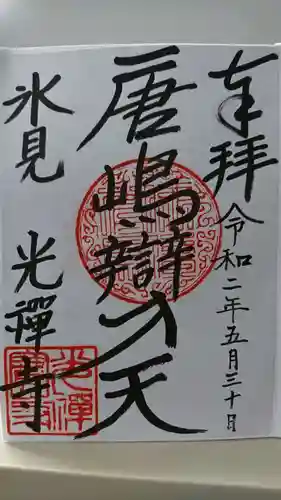 奉拝
令和二年五月三十日
唐嶋辯才天
氷見
光禪寺